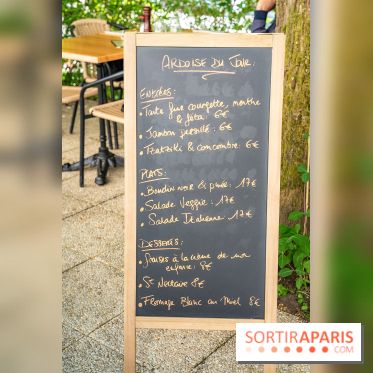 ARDOISE DU JOUR:
ENTRÉES:
• Tarte fine courgette, menthe
& feta: 6€
• Jambon persillé: 6€
• Tzatziki & concombre: 6€
PLATS:
• Boudin noir & purée: 17€
• Salade Veggie: 17€
• Salade Italienne 17€
DESSERTS:
• Fraises à la crème de mon
enfance: 8€
• St Nectaire 8€
• Fromage Blanc au Miel 8€
SORTIRAPARIS
.COM